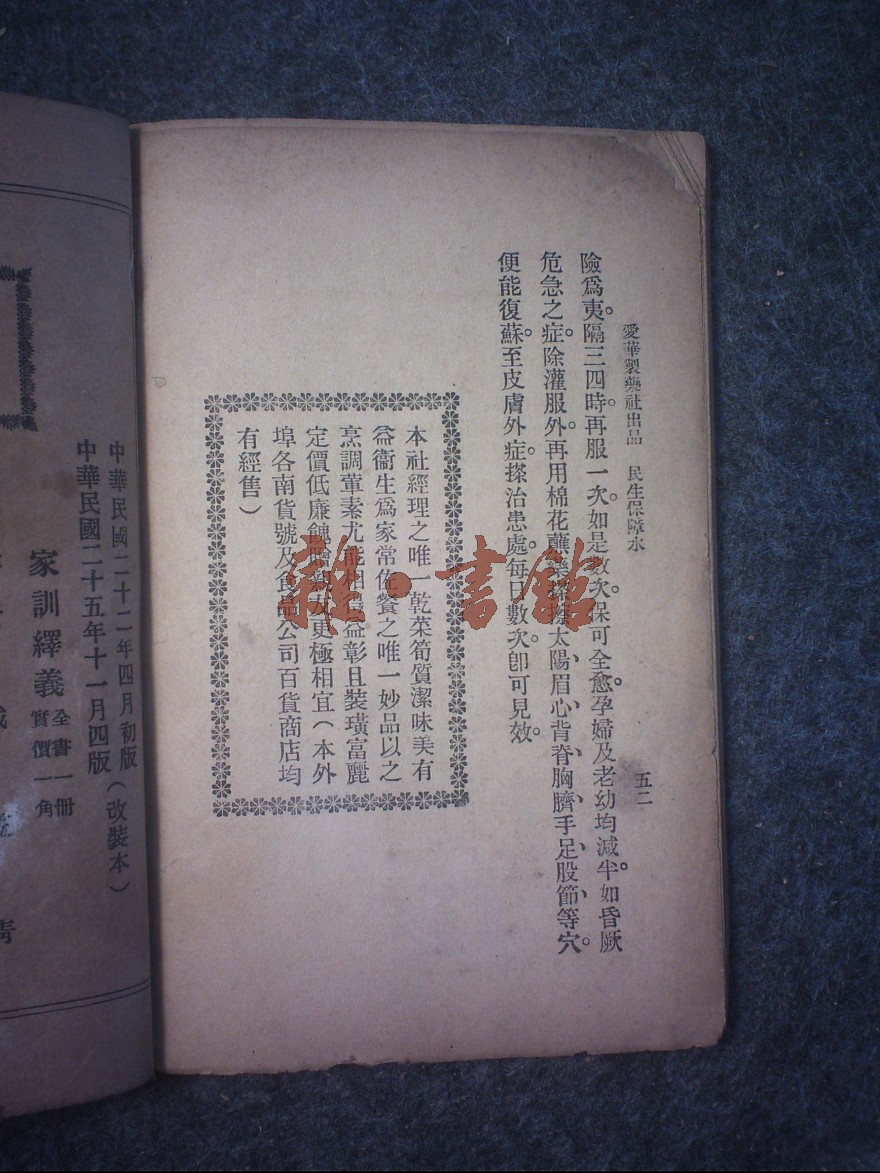 愛華製藥社出品　民生保障水
五二
險爲夷。隔三四時。再服一次。如是數次。保可全愈。孕婦及老幼均減半。如昏厥
危急之症。除灌服外。再用棉花蘸 太陽、眉心、背脊、胸臍、手足、股節、等穴。
便能復蘇。至皮膚外症。搽治患處。每日數次。卽可見效。
本社經理之唯一乾菜筍質潔味美有
益衞生爲家常佐餐之唯一妙品以之
烹調葷素尤能相得益彰且裝璜富麗
定價低廉餽贈親友更極相宜（本外
埠各南貨號及食品公司百貨商店均
有經售）
雜·書館
中華民國二十二年四月初版（改裝本）
中華民國二十五年十一月四版
家訓繹義
全書一冊
實價一角